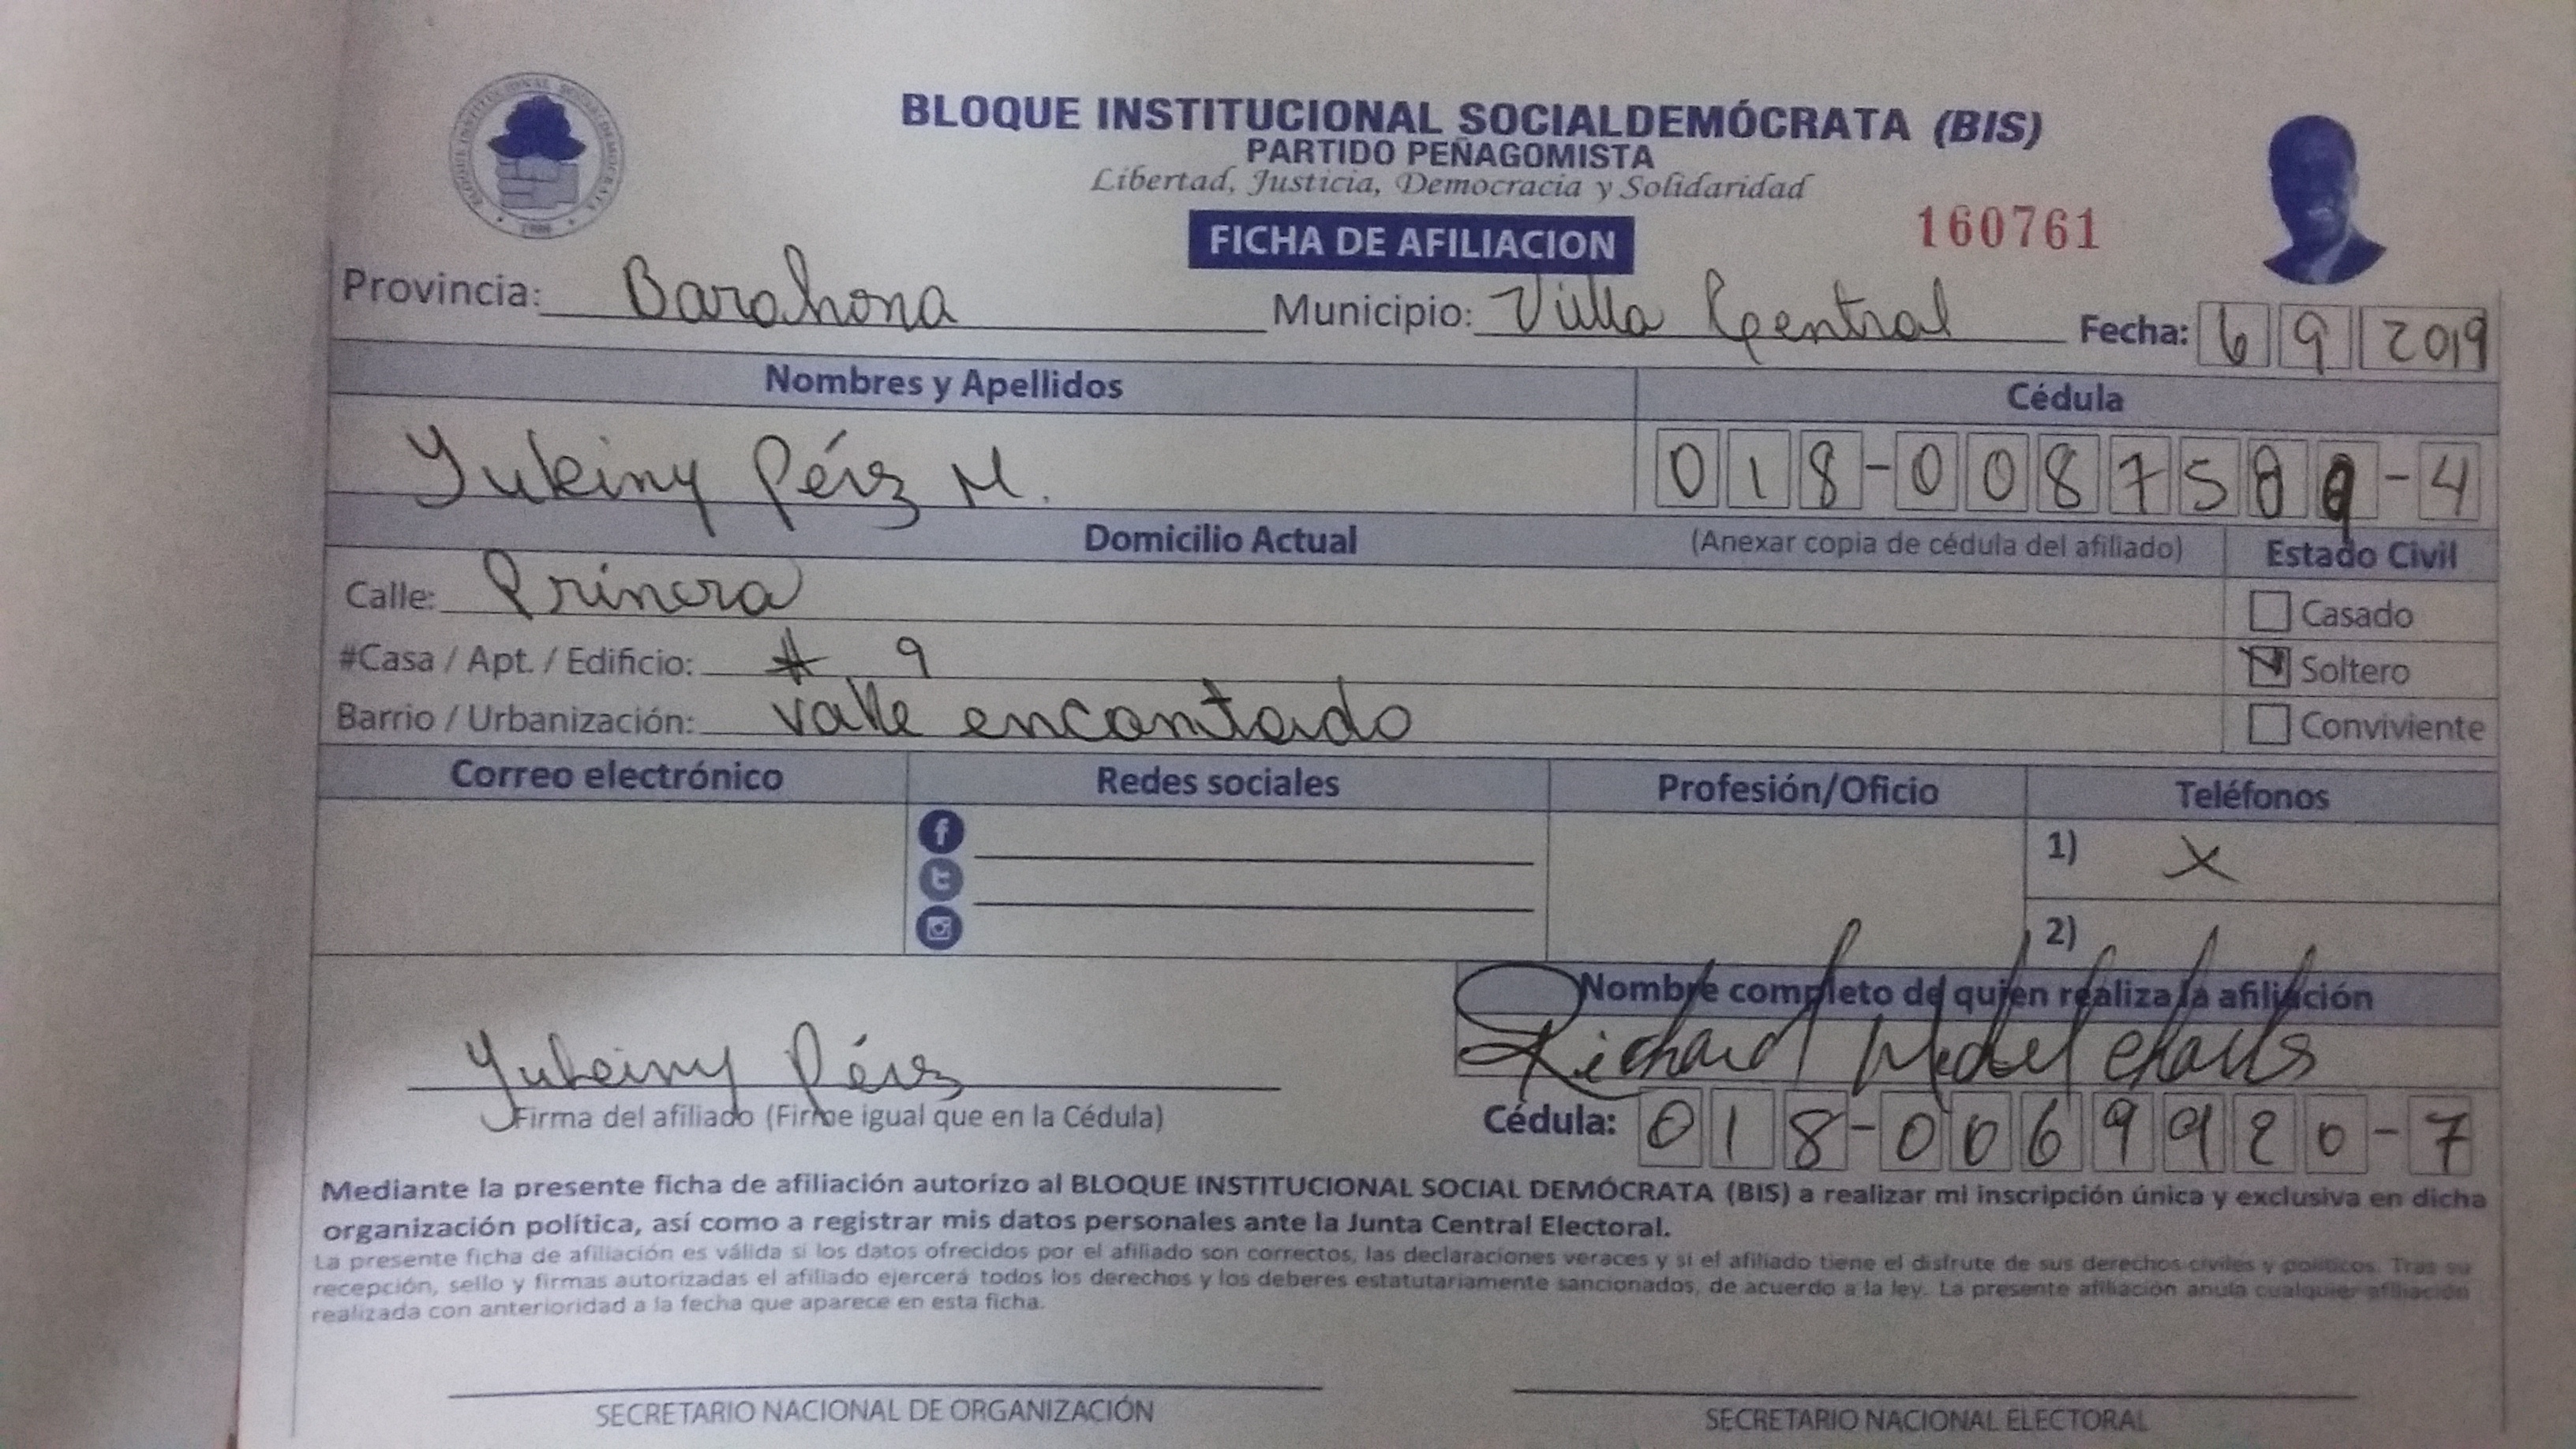 BLOQUE INSTITUCIONAL SOCIALDEMÓCRATA (BIS)
PARTIDO PEÑAGOMISTA
Libertad, Justicia, Democracia y Solidaridad
FICHA DE AFILIACION
160761
Provincia: Barahona Municipio: Villa Central Fecha: 6 9 2019
Nombres y Apellidos Cédula
Yukeiny Pérez M. 018-0087589-4
Domicilio Actual (Anexar copia de cédula del afiliado) Estado Civil
Calle: Primera
Casado
#Casa / Apt. / Edificio: # 9
Soltero
Barrio / Urbanización: Valle encantado
Conviviente
Correo electrónico Redes sociales Profesión/Oficio Teléfonos
1) X
2)
Nombre completo de quien realiza la afiliación
Richard Medel
Yukeiny Pérez
Firma del afiliado (Firme igual que en la Cédula)
Cédula: 018-0069920-7
Mediante la presente ficha de afiliación autorizo al BLOQUE INSTITUCIONAL SOCIAL DEMÓCRATA (BIS) a realizar mi inscripción única y exclusiva en dicha
organización política, así como a registrar mis datos personales ante la Junta Central Electoral.
La presente ficha de afiliación es válida si los datos ofrecidos por el afiliado son correctos, las declaraciones veraces y si el afiliado tiene el disfrute de sus derechos civiles y políticos. Tras su
recepción, sello y firmas autorizadas el afiliado ejercerá todos los derechos y los deberes estatutariamente sancionados, de acuerdo a la ley. La presente afiliación anula cualquier afiliación
realizada con anterioridad a la fecha que aparece en esta ficha.
SECRETARIO NACIONAL DE ORGANIZACIÓN
SECRETARIO NACIONAL ELECTORAL